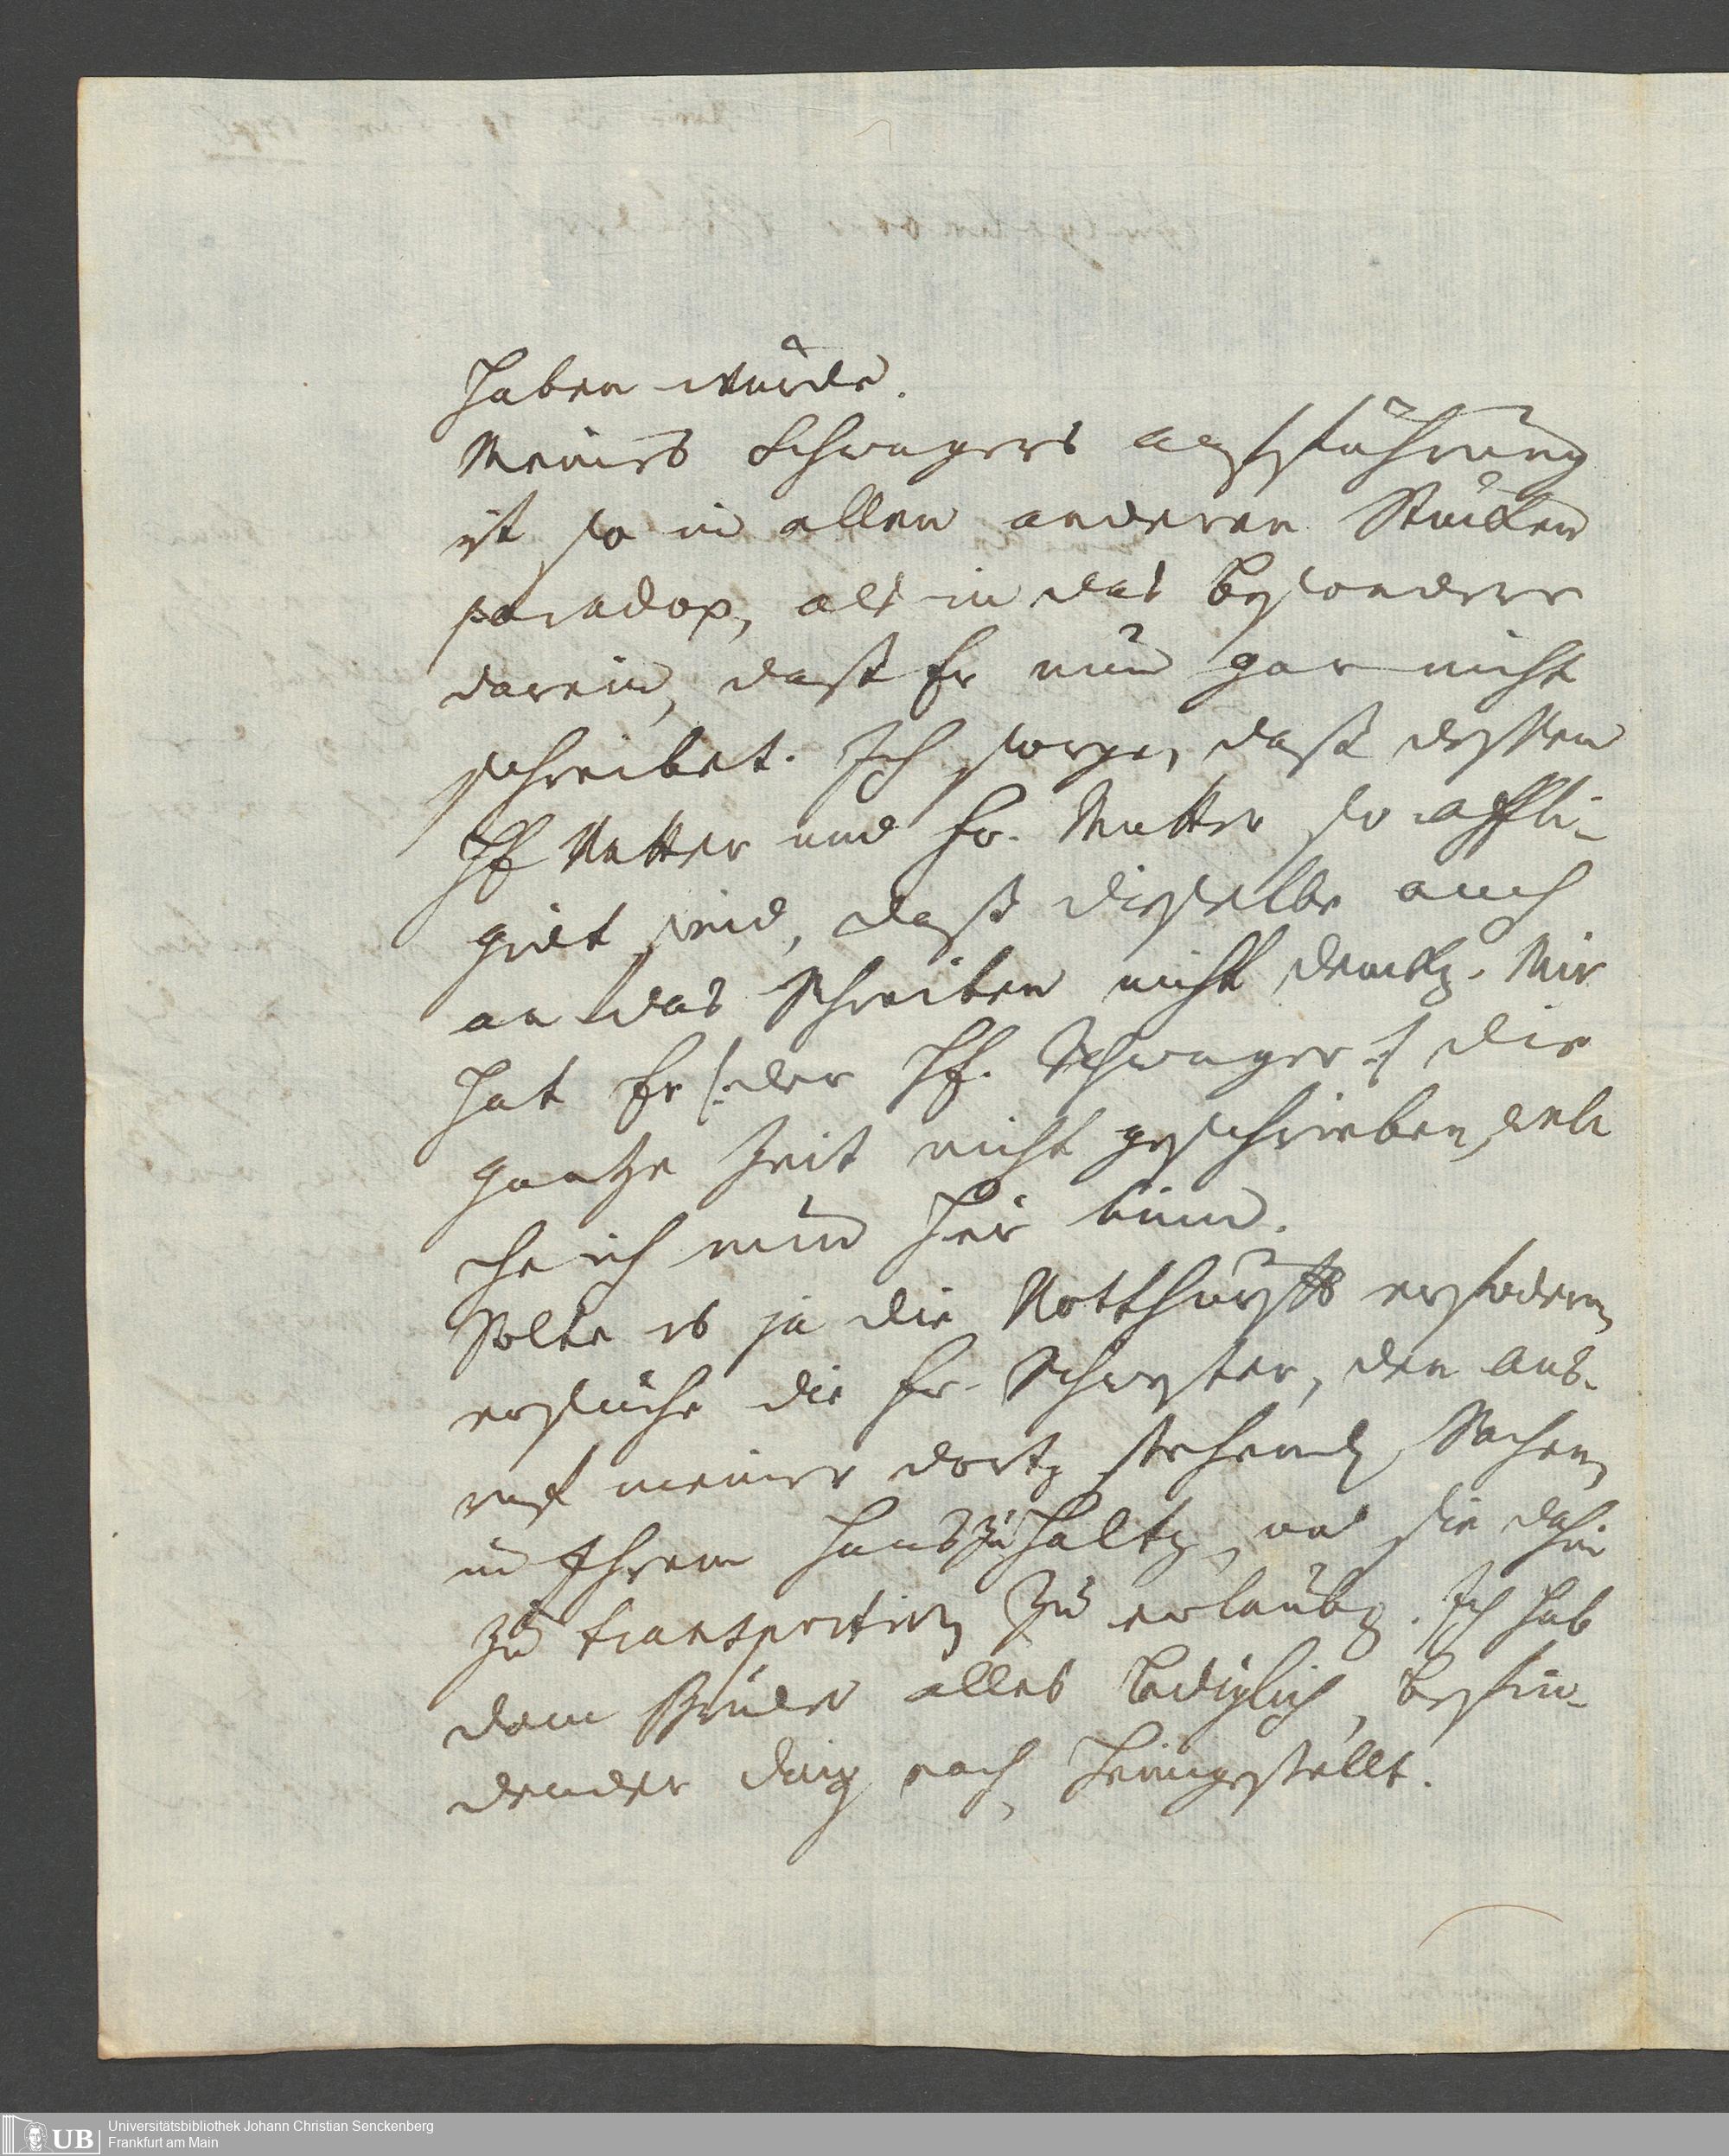 haben würde.
Meines Schwagers aufführung
ist so in allen anderen Stücken
paradox, als in das besondere
darein, dast Er nun gar nicht
schreibet. Ich sorge, dast dessen
H Vatter und Fr. Mutter so affli-
girt sind, dast dieselbe auch
an das schreiben nicht dencken. Mir
hat Er /:der H. Schwager:/ die
gantze Zeit nicht geschrieben, wel
che ich nun hier binn.
Solte es ja die Notthurfft erfodern
ersuche die Fr. Schwester, den aus-
ruf meiner dorten stehenden Sachen
in Ihrem Haus zu halten, und sie dahin
zu transportiren zu erlauben. Ich hab
dem Bruder alles lediglich, befin-
denden Ding nach, heimgestellt.
UB
Universitätsbibliothek Johann Christian Senckenberg
Frankfurt am Main